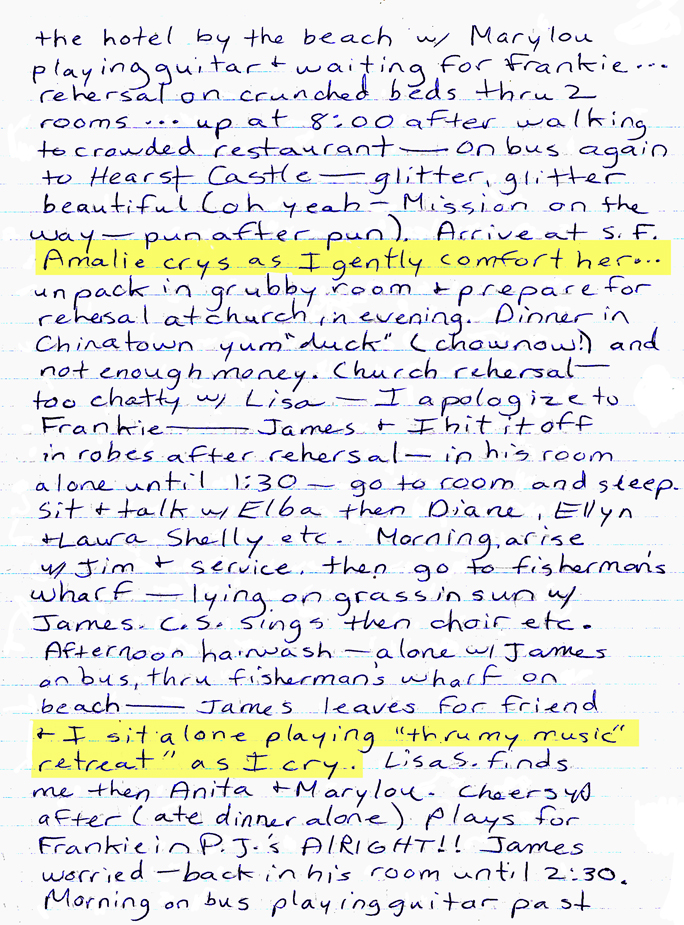 the hotel by the beach w/ Marylou
playing guitar + waiting for Frankie...
rehersal on crunched beds thru 2
rooms ... up at 8:00 after walking
to crowded restaurant — on bus again
to Hearst Castle — glitter, glitter
beautiful (oh yeah - Mission on the
way — pun after pun). Arrive at S.F.
Amalie crys as I gently comfort her...
unpack in grubby room + prepare for
rehesal at church in evening. Dinner in
Chinatown yum "duck" (chownow!) and
not enough money. Church rehersal —
too chatty w/ Lisa — I apologize to
Frankie —— James + I hit it off
in robes after rehersal — in his room
alone until 1:30 — go to room and sleep.
Sit + talk w/ Elba then Diane, Ellyn
+ Laura Shelly etc. Morning, arise
w/ Jim + service, then go to fisherman's
wharf — lying on grass in sun w/
James. C.S. sings then choir etc.
Afternoon hairwash — alone w/ James
on bus, thru fisherman's wharf on
beach —— James leaves for friend
+ I sit alone playing "thru my music"
retreat" as I cry. Lisa S. finds
me then Anita + Marylou. Cheers
after (ate dinner alone). Plays for
Frankie in P.J.'s AlRIGHT!! James
worried — back in his room until 2:30.
Morning on bus playing guitar past